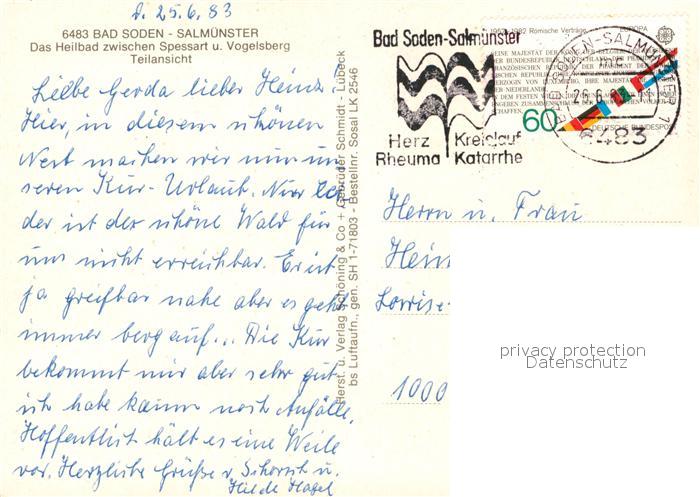 d. 25.6.83
6483 BAD SODEN - SALMÜNSTER
Das Heilbad zwischen Spessart u. Vogelsberg
Teilansicht
Liebe Gerda lieber Heinz!
Hier, in diesem schönen
Nest machen wir nun un
seren Kur-Urlaub. Nur lei
der ist der schöne Wald für
uns nicht erreichbar. Er ist
ja greifbar nahe aber es geht
immer bergauf... Die Kur
bekommt mir aber sehr gut
ich habe kaum noch Anfälle.
Hoffentlich hält es eine Weile
vor. Herzliche Grüße v. Schorsch u.
Hilde Hagel
Herst. u. Verlag Schöning & Co + Gebrüder Schmidt - Lübeck
bs Luftaufn., gen. SH 1-71803 - Bestellnr. Sosal LK 2546
Bad Soden-Salmünster
Herz Kreislauf
Rheuma Katarrhe
1957-1982 Römische Verträge
EUROPA
60
DEUTSCHE BUNDESPOST
BAD SODEN-SALMÜNSTER 1
6483
Herrn u. Frau
Hein
Lowise-
1000
privacy protection
Datenschutz